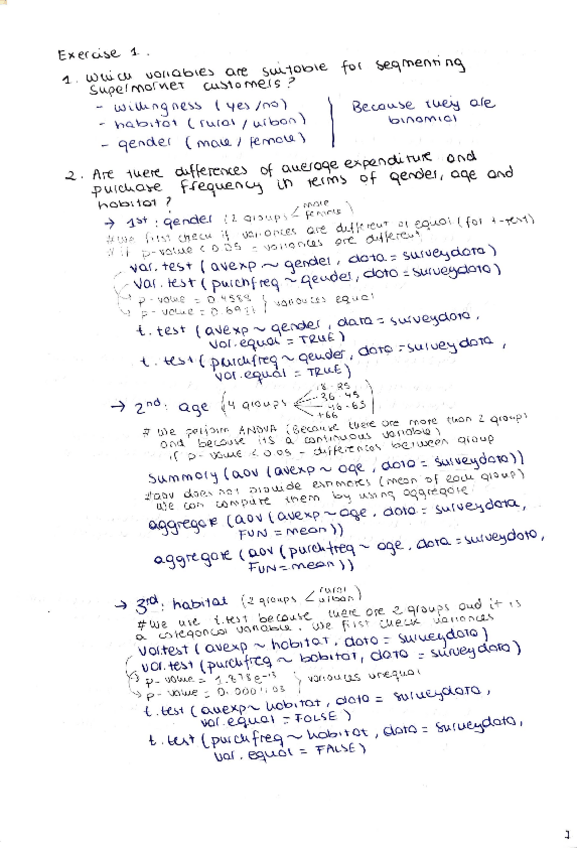 Exercise 1.
1. Which variables are suitable for segmenting
supermarket customers?
- willingness (yes/no)
- habitat (rural/urban)
- gender (male/female)
Because they are
binomial
2. Are there differences of average expenditure and
purchase frequency in terms of gender, age and
habitat?
→ 1st: gender (2 groups < male
females)
# We first check if variances are different or equal (for t-test)
# if p-value < 0.05 = variances are different
var.test (avexp ~ gender, data = surveydata)
var.test (purchfreq ~ gender, data = surveydata)
→ p-value = 0.4588
→ p-value = 
} variances equal
t.test (avexp ~ gender, data = surveydata,
var.equal = TRUE)
t.test (purchfreq ~ gender, data = surveydata,
var.equal = TRUE)
→ 2nd: age (4 groups
18-25
26-45
46-65
+66)
# We perform ANOVA (Because there are more than 2 groups
and because its a continuous variable)
if p-value < 0.05 - differences between group
summary (aov (avexp ~ age, data = surveydata))
#aov does not provide estimates (mean of each group)
We can compute them by using aggregate
aggregate (aov (avexp ~ age, data = surveydata,
FUN = mean))
aggregate (aov (purchfreq ~ age, data = surveydata,
FUN = mean))
→ 3rd: habitat (2 groups < rural
urban)
#We use t.test because there are 2 groups and it is
a categorical variable. We first check variances
var.test (avexp ~ habitat, data = surveydata)
var.test (purchfreq ~ habitat, data = surveydata)
→ p-value =
→ p-value =
} variances unequal
t.test (avexp ~ habitat, data = surveydata,
var.equal = FALSE)
t.test (purchfreq ~ habitat, data = surveydata,
var.equal = FALSE)
1